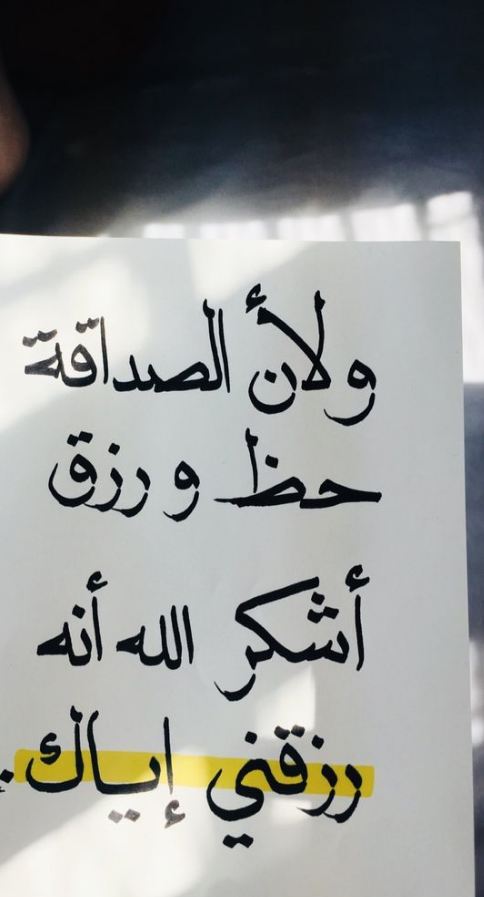 ولأن الصداقة
حظ و رزق
أشكر الله أنه
رزقني إياك.